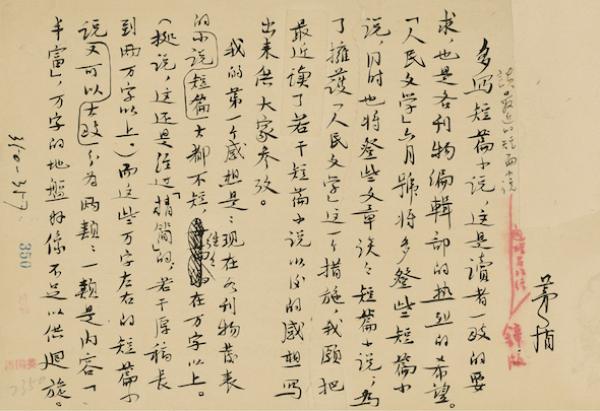 茅盾
談最近的短篇小说
多写短篇小说,这是讀者一致的要
求,也是各刊物编輯部的热烈的希望。
「人民文学」六月號将多發些短篇小
说,同时也将發些文章谈谈短篇小说;为
了擁護「人民文学」这一个措施,我願把
最近读了若干短篇小说以後的感想写
出来供大家参攷。
我的第一个感想是:现在各刊物發表
的小说短篇大都不短,往往在万字以上。
(据说,这还是经过「精简」的,若干原稿长
到两万字以上。)而这些万字左右的短篇小
说又可以大致分为两類:一類是内容「
丰富」,万字的地盤好像不足以供迴旋。
310-317
350